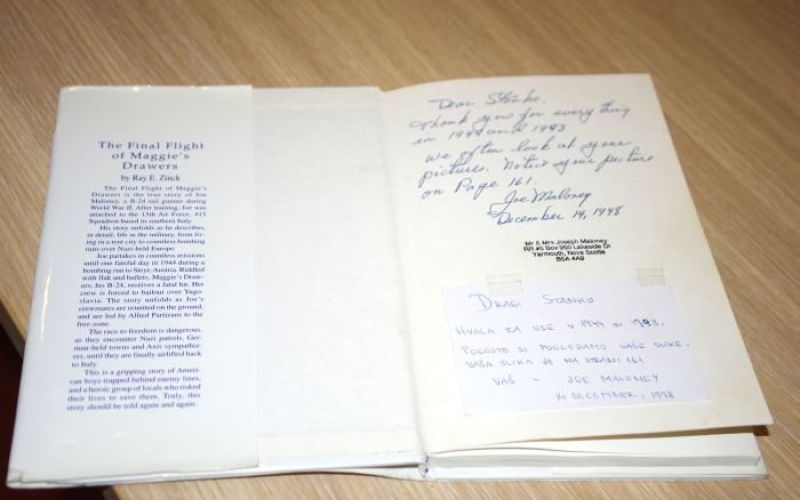 The Final Flight
of Maggie's
Drawers
by Ray E. Zinck
The Final Flight of Maggie's
Drawers is the true story of Joe
Maloney, a B-24 tail gunner during
World War II. After training, Joe was
attached to the 15th Air Force, 415
Squadron based in southern Italy.
His story unfolds as he describes,
in detail, life in the military, from liv-
ing in a tent city to countless bombing
runs over Nazi-held Europe.
Joe partakes in countless missions
until one fateful day in 1944 during a
bombing run to Steyr, Austria. Riddled
with flak and bullets, Maggie's Draw-
ers, his B-24, receives a fatal hit. Her
crew is forced to bailout over Yugo-
slavia. The story unfolds as Joe's
crewmates are reunited on the ground,
and are led by Allied Partizans to the
free zone.
The race to freedom is dangerous,
as they encounter Nazi patrols, Ger-
man-held towns and Axis sympathiz-
ers, until they are finally airlifted back
to Italy.
This is a gripping story of Ameri-
can boys trapped behind enemy lines,
and a heroic group of locals who risked
their lives to save them. Truly, this
story should be told again and again.
Dear Stanko,
Thank you for everything
in 1944 and 1993
We often look at your
pictures. Notice your picture
on Page 161.
Joe Maloney
December 14, 1998
Mr & Mrs Joseph Maloney
RR #5 Box 950 Lakeside Dr
Yarmouth, Nova Scotia
B5A 4A9
DRAGI STANKO
HVALA ZA VSE V 1944 IN 1993.
POGOSTO SI POGLEDAMO VAŠE SLIKE.
VAŠA SLIKA JE NA STRANI 161
VAŠ - JOE MALONEY
14 DECEMBER, 1998